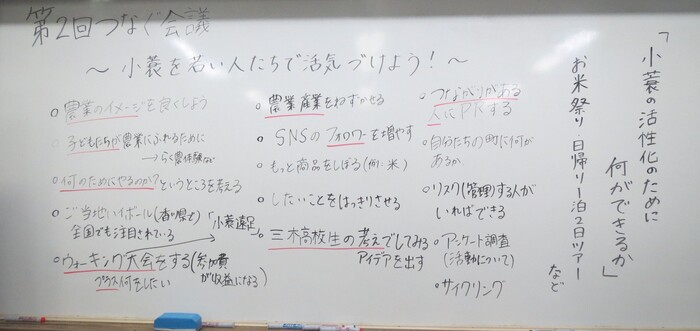 第2回つなぐ会議
～小蓑を若い人たちで活気づけよう!～
「小蓑の活性化のために
何ができるか」
お米祭り・日帰り一泊2日ツアー
など
○農業のイメージを良くしよう
○子どもたちが農業にふれるために
→らく農体験など
○何のためにやるのか?というところを考える
○ご当地いイボール(香川県で)
全国でも注目されている
「小蓑遠足」
○ウォーキング大会をする(参加費
プラス何をしたい
が収益になる)
○農業産業をねずかせる
○SNSのフォロワーを増やす
○もっと商品をしぼる(例:米)
○したいことをはっきりさせる
○三木高校生の考えでしてみる
アイデアを出す
○つながりがある
人にPRする
○自分たちの町に何が
あるか
○リスク(管理)する人が
いればできる
○アンケート調査
(活動について)
○サイクリング